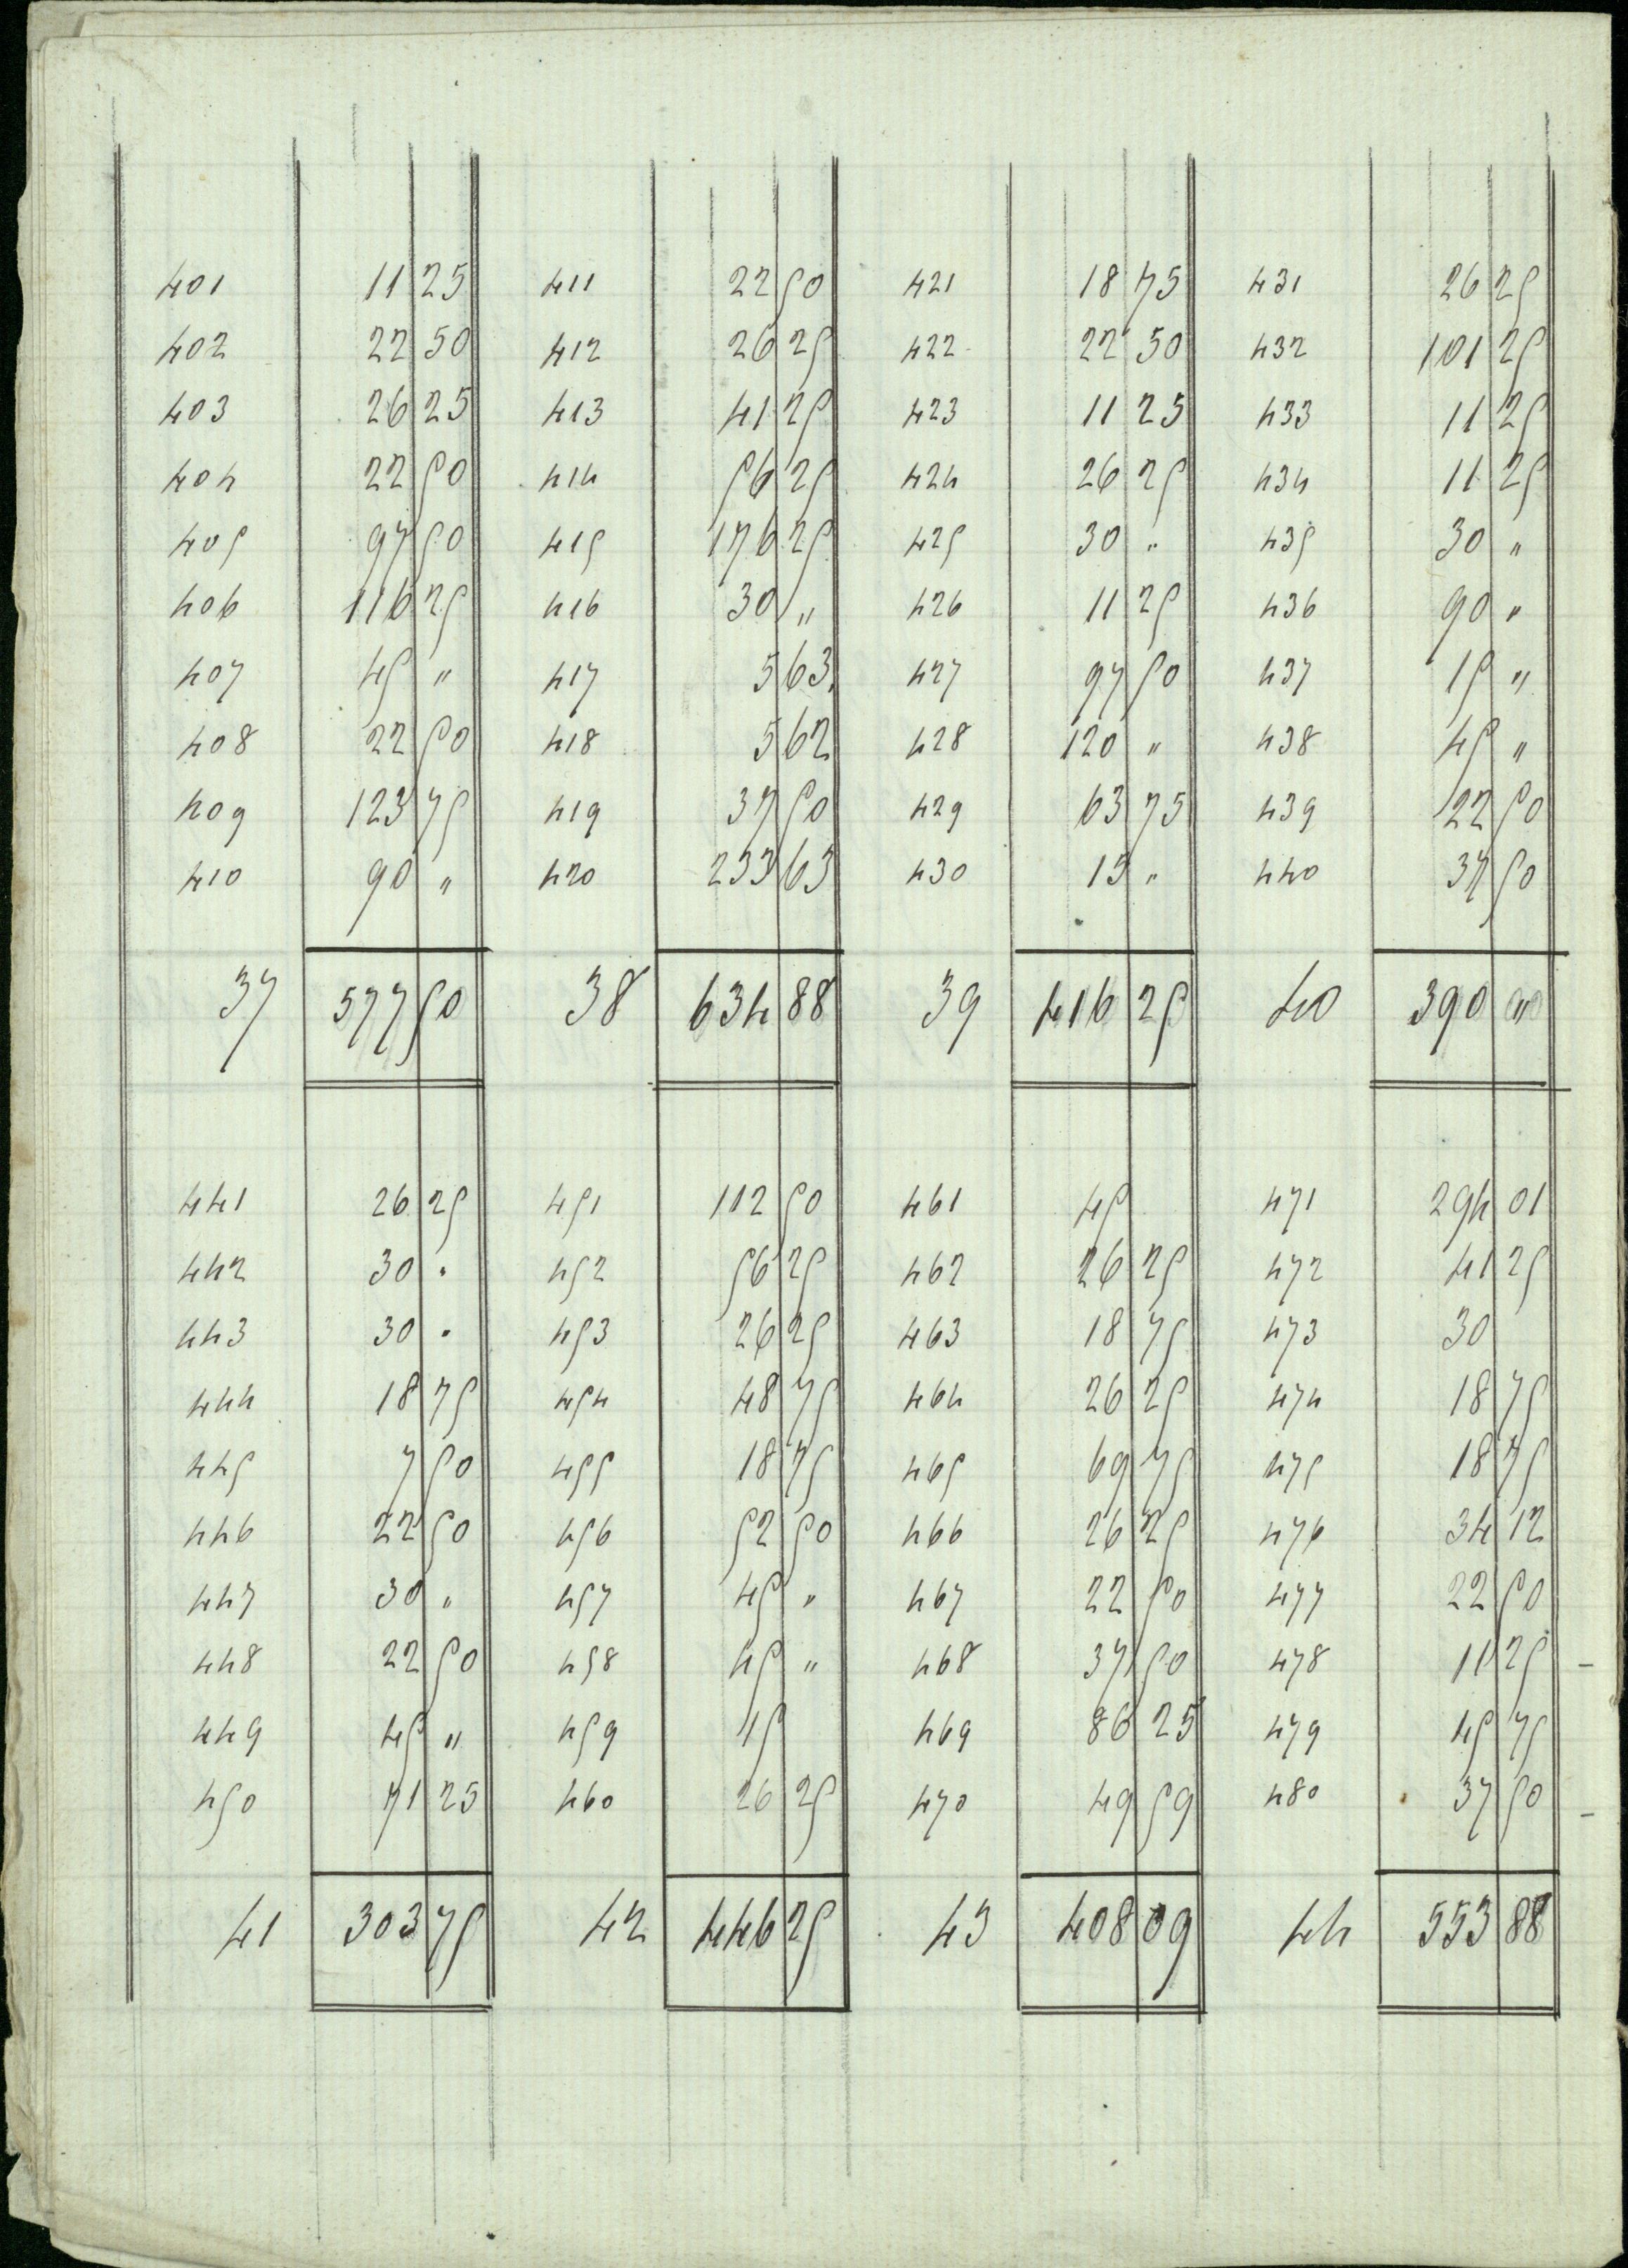 401 11 25 411 22 50 421 18 75 431 26 25
402 22 50 412 26 25 422 22 50 432 101 25
403 26 25 413 41 25 423 11 25 433 11 25
404 22 50 414 56 25 424 26 25 434 11 25
405 97 50 415 176 25 425 30 " 435 30 "
406 116 25 416 30 " 426 11 25 436 90 "
407 45 " 417 5 63 427 97 50 437 15 "
408 22 50 418 5 62 428 120 " 438 45 "
409 123 75 419 37 50 429 63 75 439 22 50
410 90 " 420 233 63 430 15 " 440 37 50
37 577 50 38 634 88 39 416 25 40 390 00
441 26 25 451 112 50 461 45 471 294 01
442 30 " 452 56 25 462 26 25 472 41 25
443 30 " 453 26 25 463 18 75 473 30
444 18 75 454 48 75 464 26 25 474 18 75
445 7 50 455 18 75 465 69 75 475 18 75
446 22 50 456 52 50 466 26 25 476 34 12
447 30 " 457 45 " 467 22 50 477 22 50
448 22 50 458 45 " 468 37 50 478 11 25 –
449 45 " 459 15 469 86 25 479 45 75
450 71 25 460 26 25 470 49 59 480 37 50 –
41 303 75 42 446 25 43 408 09 44 553 88